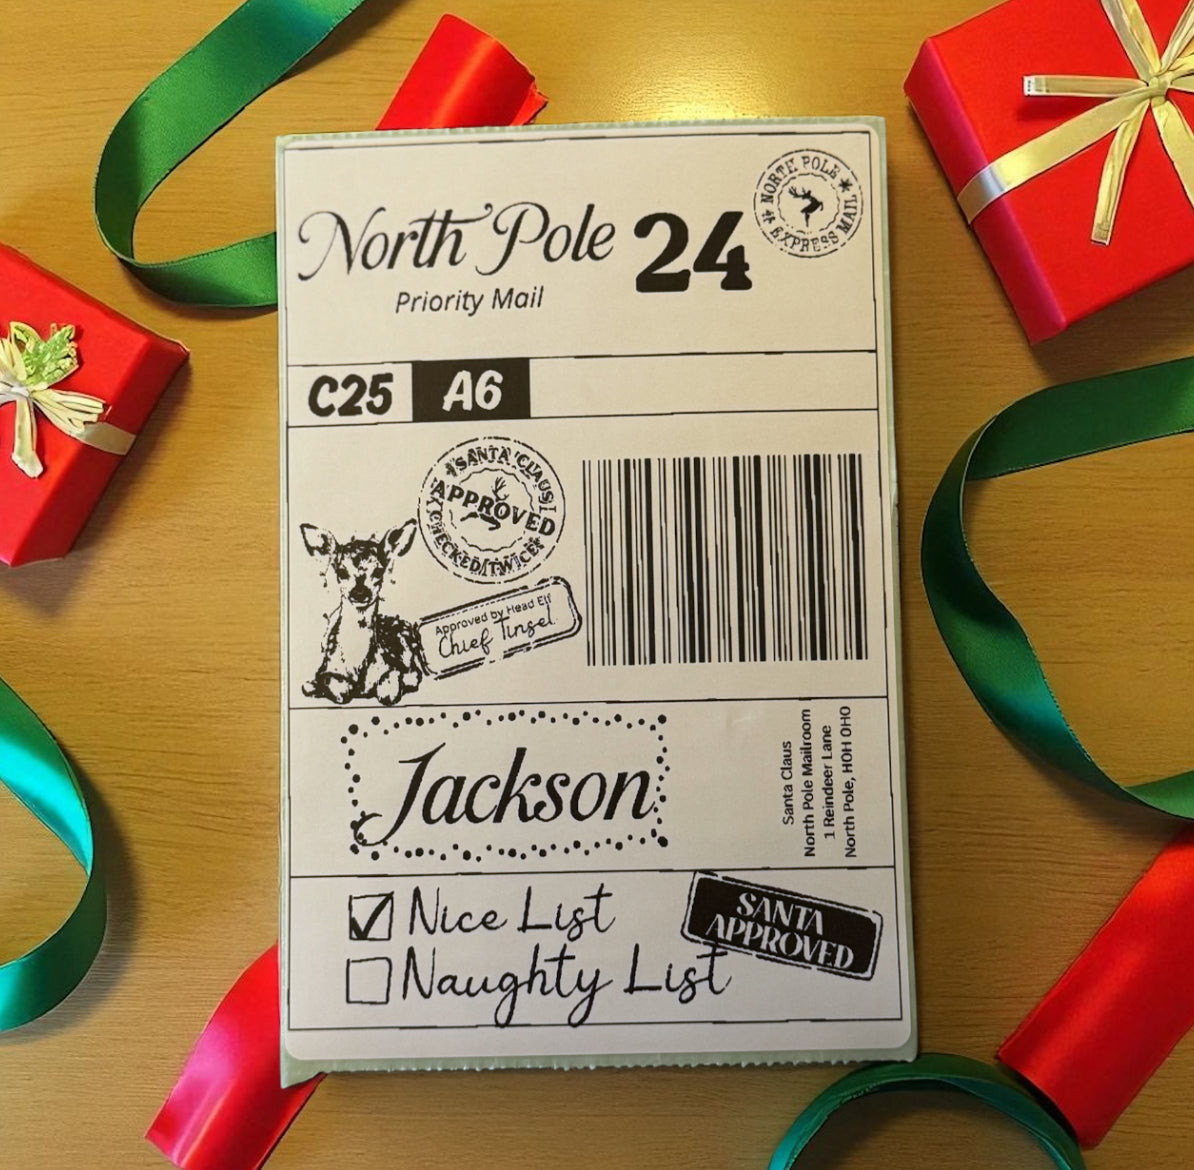 North Pole 24
Priority Mail
NORTH POLE
EXPRESS MAIL
C25 A6
SANTA CLAUS
APPROVED
CHECKED TWICE
Approved by Head Elf
Chief Tinsel
Jackson
Santa Claus
North Pole Mailroom
1 Reindeer Lane
North Pole, HOH OHO
Nice List
Naughty List
SANTA
APPROVED